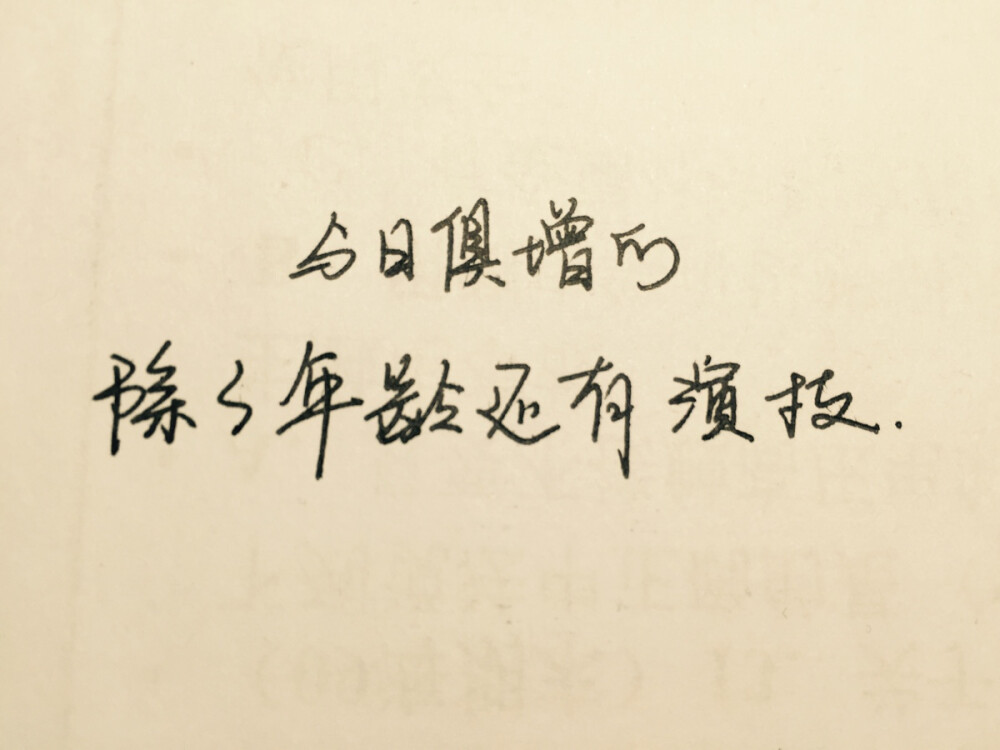 与日俱增的
除了年龄还有演技.